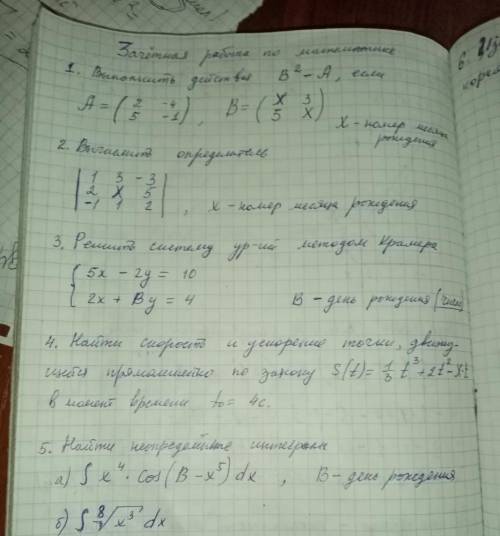 Зачётная работа по математике
1. Выполнить действия B² - A, если
A = ( 2 -4 ; 5 -1 ), B = ( X 3 ; 5 X )
X - номер месяца рождения
2. Вычислить определитель
| 1 3 -3 |
| 2 X 5 |
| -1 1 2 | , X - номер месяца рождения
3. Решить систему ур-ий методом Крамера
{ 5x - 2y = 10
2x + By = 4 B - день рождения (число)
4. Найти скорость и ускорение точки, движу-
щейся прямолинейно по закону S(t) = 1/3 t³ + 2t²
в момент времени t₀ = 4с.
5. Найти неопределённые интегралы
а) ∫ x⁴ · cos(B - x⁵) dx , B - день рождения
б) ∫ ⁸√x³ dx
6.